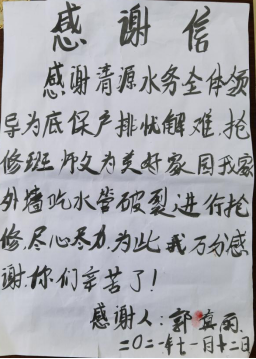 感谢信
感谢清源水务全体领
导为底保户排忧解难.抢
修班师文为美好家园我家
外墙吃水管破裂进行抢
修,尽心尽力,为此我万分感
谢.你们辛苦了!
感谢人:郭真雨
二〇二一年十一月十二日